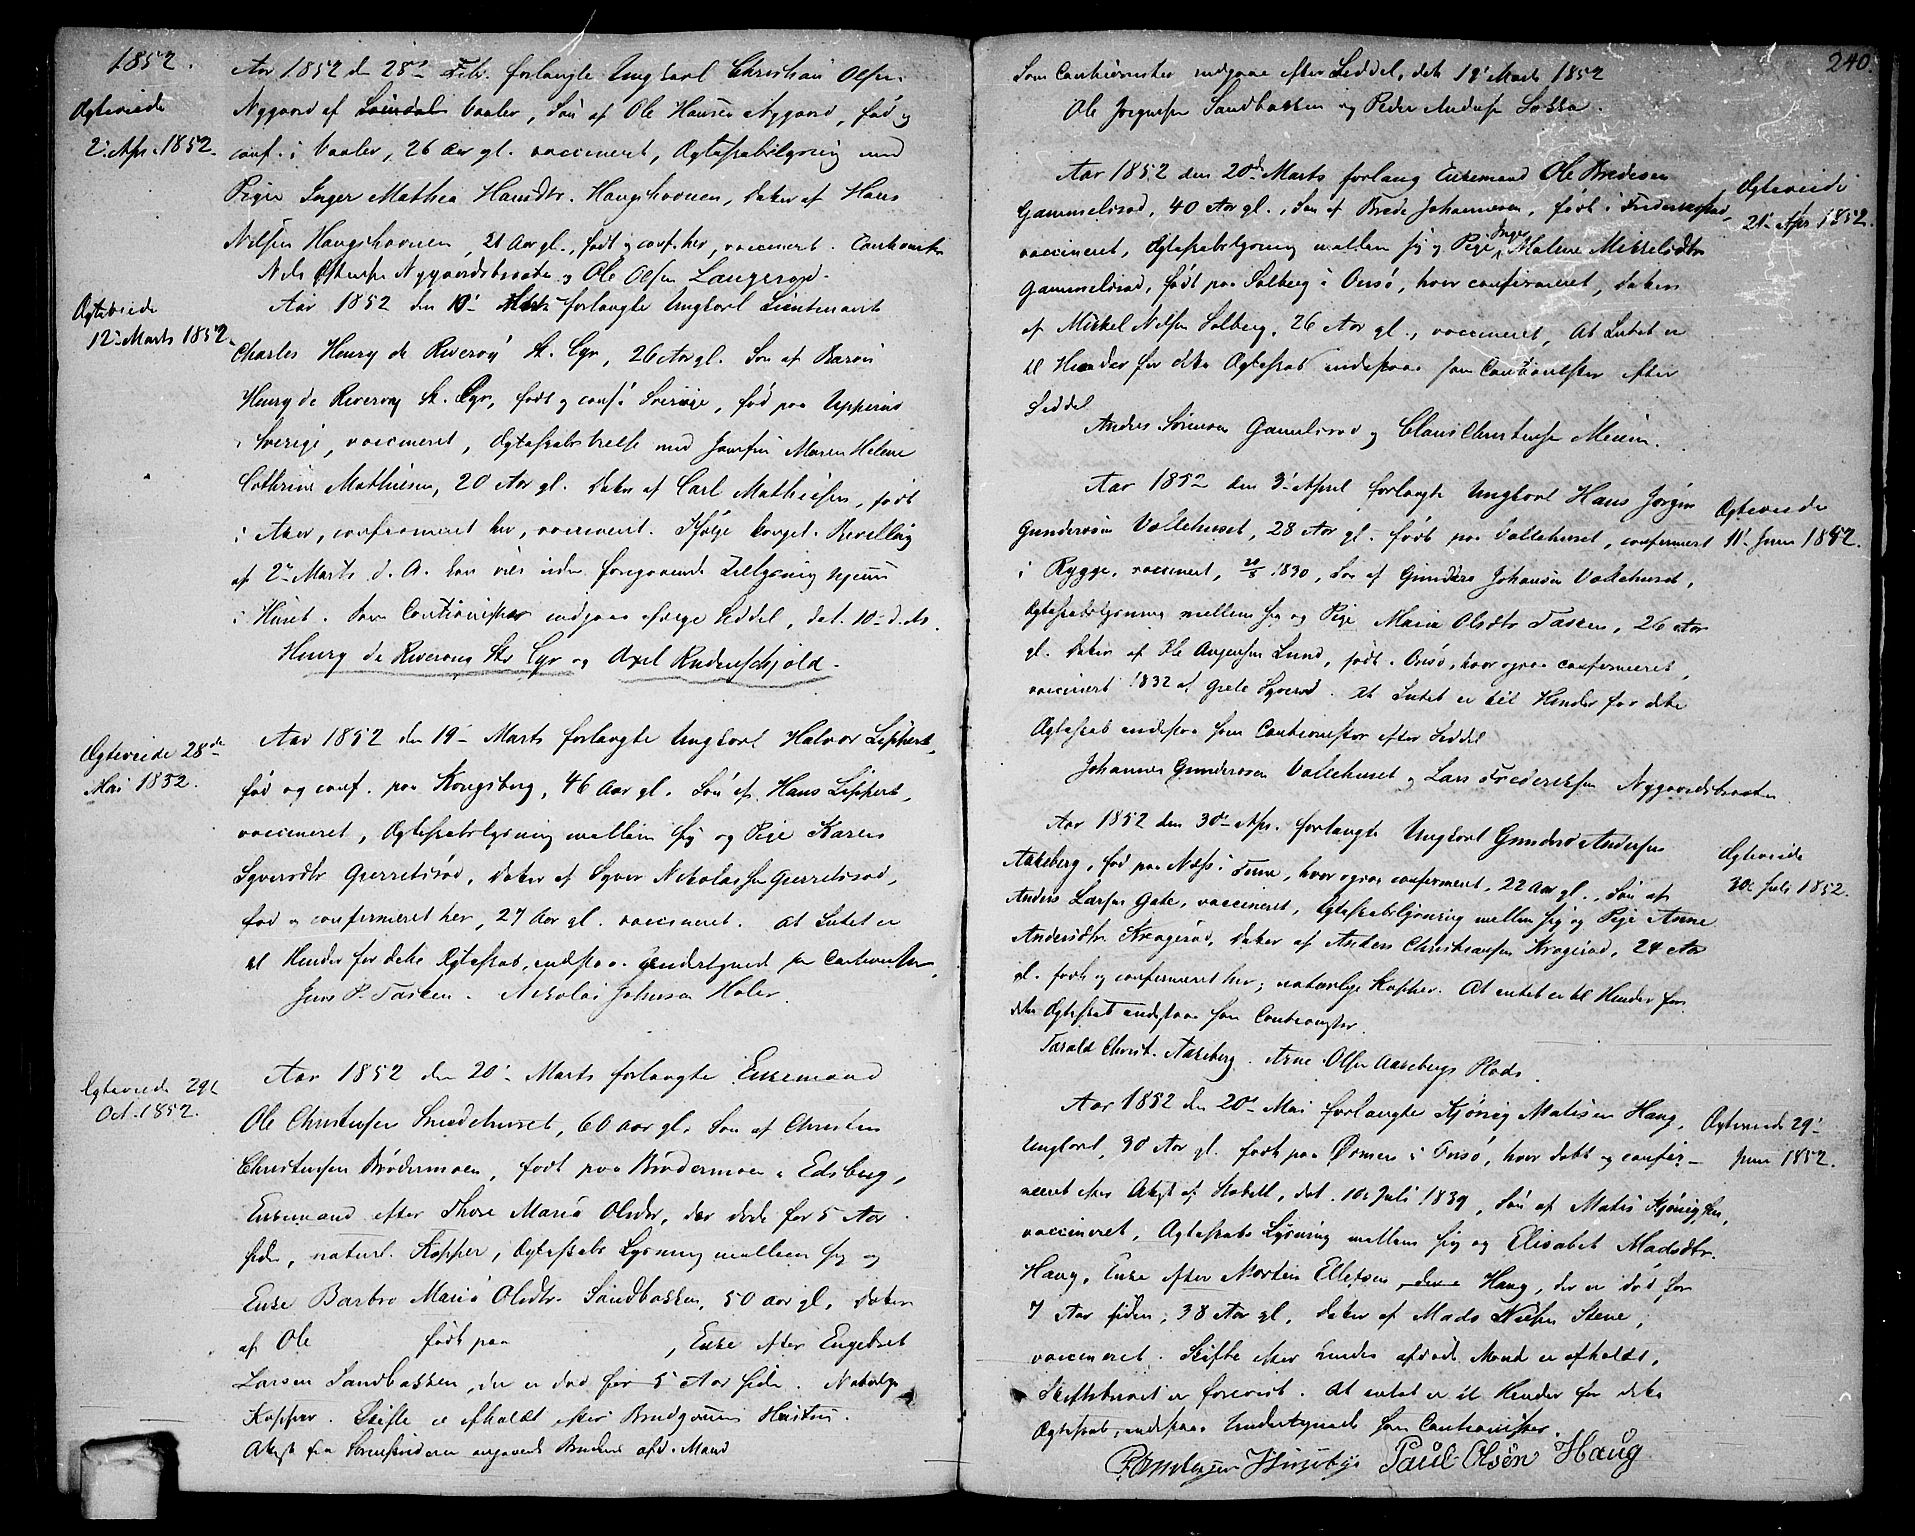 1852.
Aar 1852 d 28de Febr. forlangte Ungkarl Christian Olsen
Nygaard af Vaaler, Søn af Ole Hansen Nygaard, fød og
Ægteviede
2 Apr. 1852.
conf. i Vaaler, 26 Aar gl. vaccineret, Ægteskabslysning med
Pige Inger Mathea Hansdtr. Haugshavnen, Datter af Hans
Nilsen Haugshavnen, 21 Aar gl., født og conf. her, vaccineret.
Nils Nygaardsbraaten og Ole Olsen Langerød.
Ægteviede
12 Marts 1852.
Aar 1852 den 10 Marts forlangte Ungkarl Lieutenant
Charles Henry de Riverony St. Cyr, 26 Aar gl. Søn af Baron
Henry de Riverony St. Cyr, født og conf. i Sverige, fød paa
i Sverige, vaccineret, med Jomfru Maren Helene
Cathrine Mathiesen, 20 Aar gl. Datter af Carl Mathiesen, født
i Aker, confirmeret her, vaccineret. Ifølge kongel. Bevilling
af 2 Marts d. A. kan vies uden foregaaende Tillysning hjemme
i Huset. Som Cautionister indgaae ifølge Seddel, dat. 10 d. M.
Henry de Riverony St. Cyr og Axel Rudenschjold.
Ægteviede 28de
Mai 1852.
Aar 1852 den 19 Marts forlangte Ungkarl Halvor Lippert,
fød og conf. paa Kongsberg, 46 Aar gl. Søn af Hans Lippert,
vaccineret, Ægteskabslysning mellem sig og Pige Karen
Syversdtr Gjerretsrød, Datter af Syver Nikolaisen Gjerretsrød,
fød og confirmeret her, 27 Aar gl. vaccineret. At Intet er
til Hinder for dette Ægteskab, indestaa Undertegnede som Cautionister,
Jens P. Tasken. Nikolai Johnsen Holer.
Ægteviede 29d
Oct. 1852.
Aar 1852 den 20 Marts forlangte Enkemand
Ole Christensen Smedehuset, 60 Aar gl. Søn af Christen
Christensen Brødermoen, født paa Brødermoen i Edsberg,
Enkemand efter Thore Maria Olsdtr, der døde for 5 Aar
siden, naturl. Kopper, Ægteskabs Lysning mellem sig og
Enke Barbro Maria Olsdtr. Sandbakken, 50 Aar gl. Datter
af Ole født paa , Enke efter Engebret
Larsen Sandbakken, der er død for 5 Aar siden. Naturlige
Kopper. Skifte er afholdt efter Brudgommens Hustru.
Attest fra Sorenskriveren angaaende Brudens afd. Mand
240.
Som Cautionister indgaae efter Seddel, dat. 12 Marts 1852
Ole Jørgensen Sandbakken og Peder Andersen Løkka.
Aar 1852 den 20de Marts forlang. Enkemand Ole Bredesen
Ægteviede
21 Apr. 1852.
Gammelsrød, 40 Aar gl., Søn af Brede Johannesen, født i Frederiksstad,
vaccineret, Ægteskabslysning mellem sig og Pige Inge Malene Mikkelsdtr
Gammelsrød, født paa Solberg i Onsø, hvor confirmeret, Datter
af Mikkel Nilsen Solberg, 26 Aar gl., vaccineret, At Intet er
til Hinder for dette Ægteskab indestaae som Cautionister efter
Seddel
Anders Sørensen Gamelsrød og Claus Christensen
Aar 1852 den 3 April forlangte Ungkarl Hans Jørgen
Ægteviede
11 Juni 1852.
Gundersen Vattehuset, 28 Aar gl. født paa Vallehuset, confirmert
i Rygge, vaccinert, 20/8 1830, Søn af Gunder Johansen Vattehuset,
Ægteskabslysning mellem sig og Pige Maria Olsdtr Tasken, 26 Aar
gl. Datter af Ole Lund, født i Onsø, hvor ogsaa confirmeret,
vaccinert 1832 af Grete Syverød. At Intet er til Hinder for dette
Ægteskab indestaa som Cautionister efter Seddel
Johannes Gundersen Vattehuset og Lars Frederiksen Nygaardsbraaten.
Aar 1852 den 30de Apr. forlangte Ungkarl Gunder Andersen
Ægteviede
30 Juli 1852.
Aaseberg, fød paa Næss i Tune, hvor ogsaa confirmert, 22 Aar gl., Søn af
Anders Larsen Gate, vaccineret, Ægteskabslysning mellem sig og Pige Anne
Andersdtr Kragerød, Datter af Anders Christiansen Kragerød, 24 Aar
gl. født og confirmeret her; naturlige Kopper. At intet er til Hinder for
dette Ægteskab indestaae som Cautionister
Tarald Christ. Aaseberg. Arne Olsen Aasebergs Plads.
Aar 1852 den 20de Mai forlangte Kjønig Matisen Haug,
Ægteviede 29
Juni 1852.
Ungkarl, 30 Aar gl. født paa i Onsø, hvor døbt og confir-
meret efter Attest af Stabell, dat. 10 Juli 1839, Søn af Matis Kjønigsen,
vaccineret, Ægteskabs Lysning mellem sig og Elisabet Madsdtr.
Haug, Enke efter Morten Ellefsen Haug, der er død for
7 Aar siden, 38 Aar gl, Datter af Mads Nilsen Stene,
vaccineret. Skifte efter hendes afdøde Mand er afholdt,
Skiftebrevet er forevist. At intet er til Hinder for dette
Ægteskab, indestaae Undertegnede som Cautionister.
Paul Olsen Haug